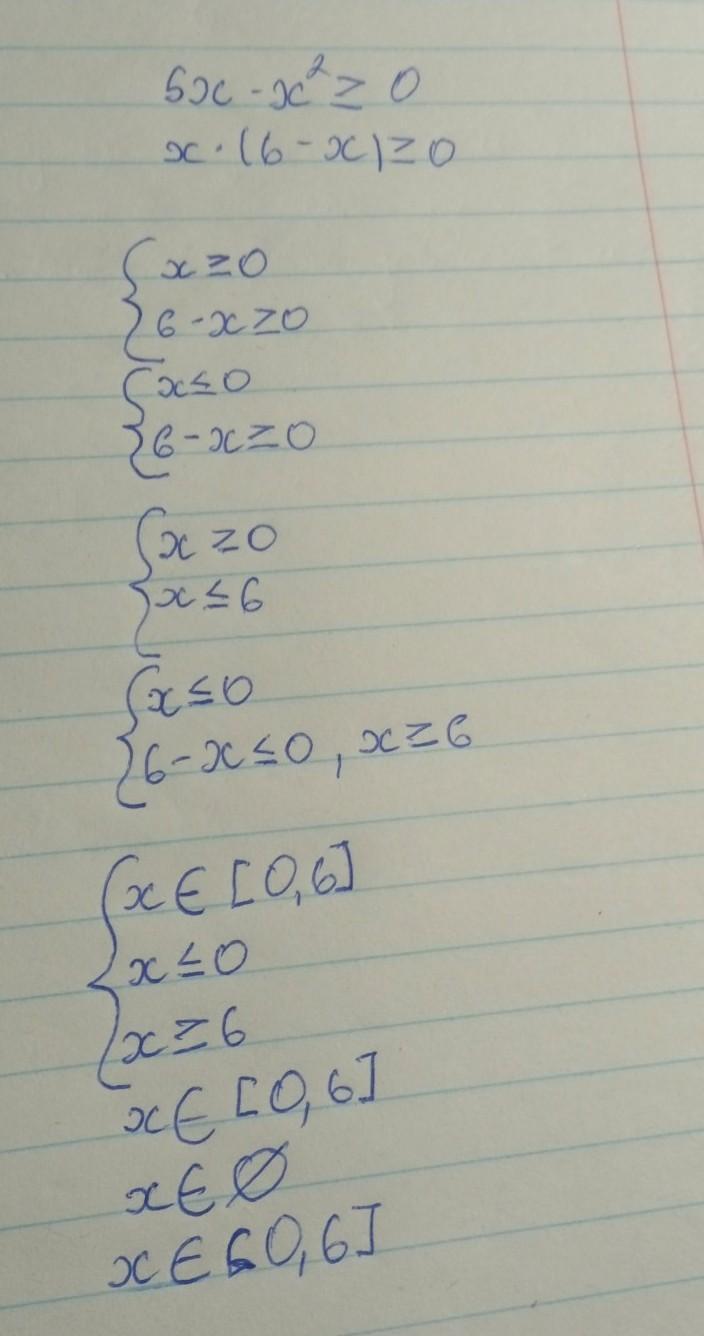 6x - x² ≥ 0
x · (6 - x) ≥ 0
{ x ≥ 0
6 - x ≥ 0
{ x ≤ 0
6 - x ≥ 0
{ x ≥ 0
x ≤ 6
{ x ≤ 0
6 - x ≤ 0, x ≥ 6
{ x ∈ [0,6]
x ≤ 0
x ≥ 6
x ∈ [0,6]
x ∈ ∅
x ∈ [0,6]